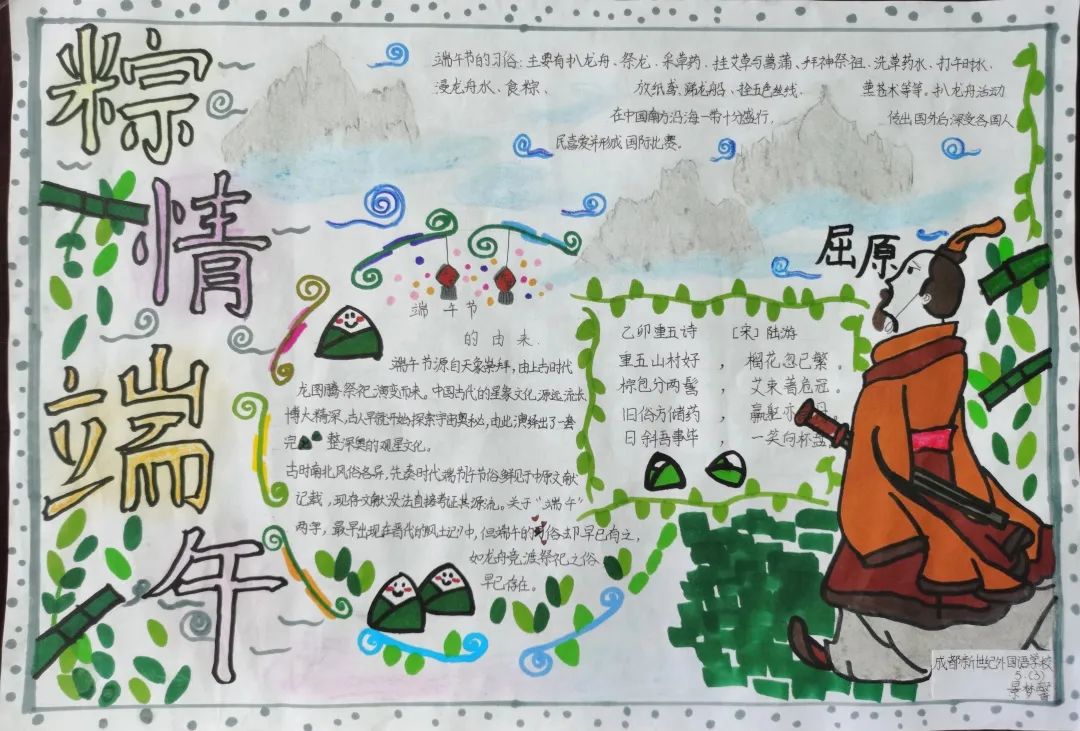 粽
情
端
午
端午节的习俗：主要有扒龙舟、祭龙、采草药、挂艾草与菖蒲、拜神祭祖、洗草药水、打午时水、
浸龙舟水、食粽、放纸鸢、睇龙船、拴五色丝线、薰苍术等等。扒龙舟活动
在中国南方沿海一带十分盛行，传出国外后深受各国人
民喜爱并形成国际比赛。
屈原
端午节
的由来
端午节源自天象崇拜，由上古时代
龙图腾祭祀演变而来。中国古代的星象文化源远流长
博大精深，古人早就开始探索宇宙奥秘，由此演绎出了一套
完整深奥的观星文化。
古时南北风俗各异，先秦时代端节午节俗鲜见于中原文献
记载，现存文献没法直接考证其源流。关于“端午”
两字，最早出现在晋代的《风土记》中，但端午的习俗却早已有之，
如龙舟竞渡祭祀之俗
早已存在。
乙卯重五诗 [宋]陆游
重五山村好，榴花忽已繁。
粽包分两髻，艾束著危冠。
旧俗方储药，羸躯亦。
日斜吾事毕，一笑向杯盘
成都新世纪外国语学校
5.(3)
景梦馨